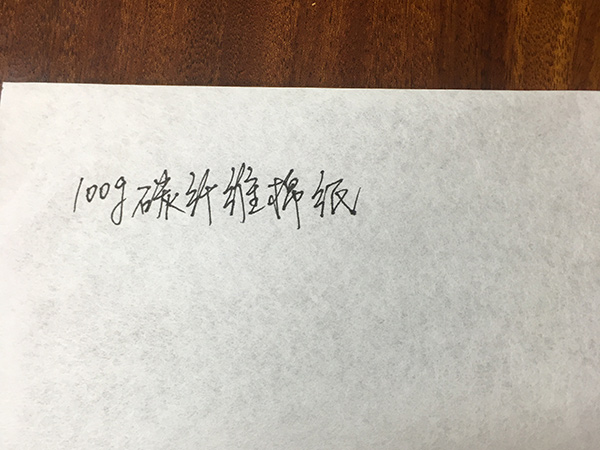 100g碳纤维棉纸